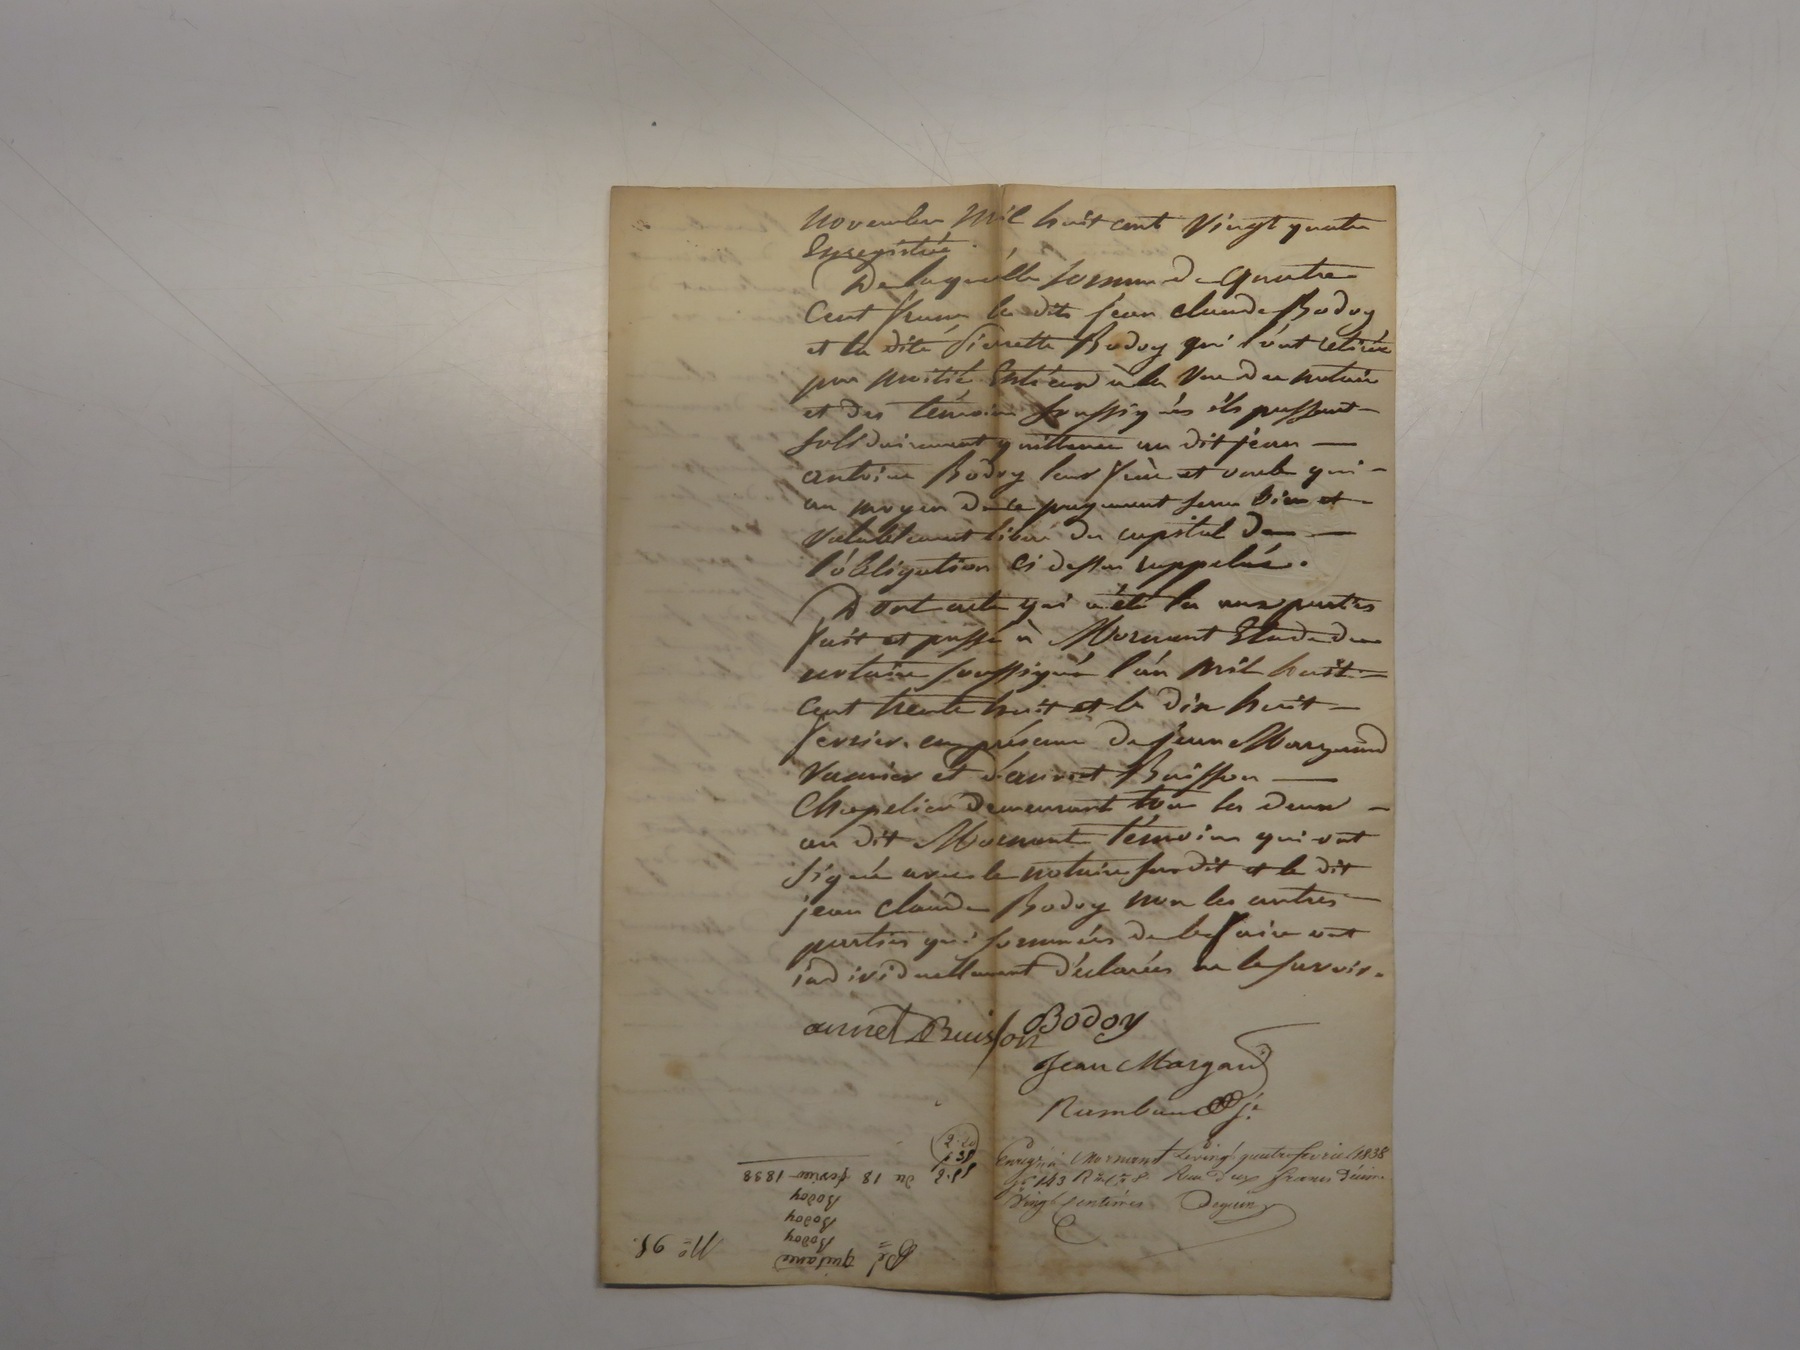 novembre mil huit cent vingt quatre
Enregistrée.
De laquelle somme de quatre
Cent francs les dits jean claude Bodoy
et la dite Pierrette Bodoy qui l'ont retirée
par moitié entr'eux à la vue du notaire
et des témoins soussignés ils passent
solidairement quittance au dit jean
antoine Bodoy leur frère et oncle qui
au moyen de ce payement sera bien et
valablement libéré du capital de
l'obligation ci dessus rappelée.
Dont acte qui a été lu aux parties
fait et passé à Mornant Etude du
notaire soussigné l'an mil huit
cent trente huit et le dix huit
fevrier. en présence de jean Margand
vannier et d'annet Buisson
Chapelier demeurant tous les deux
au dit Mornant témoins qui ont
signé avec le notaire susdit et le dit
jean claude Bodoy non les autres
parties qui sommées de le faire ont
individuellement déclarées ne le savoir.
annet Buisson Bodoy
Jean Margand
Rambaud je
Enregré à Mornant le vingt quatre fevrier 1838
fo 143 Ro Ce 8. Reçu deux francs décime
Vingt centimes Deguin
No 95.
quitance
Bodoy
Bodoy
Bodoy
du 18 fevrier 1838
2.20